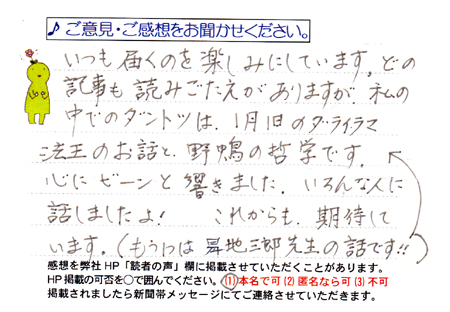 ♪ご意見・ご感想をお聞かせください。
いつも届くのを楽しみにしています。どの
記事も読みごたえがありますが、私の
中でのダントツは、1月1日のダライラマ
法王のお話と、野鴨の哲学です。
心にビーンと響きました。いろんな人に
話しましたよ! これからも、期待して
います。(もう1つは昇地三郎先生の話です!!)
感想を弊社HP「読者の声」欄に掲載させていただくことがあります。
HP掲載の可否を○で囲んでください。(1)本名で可(2)匿名なら可(3)不可
掲載されましたら新聞帯メッセージにてご連絡させていただきます。